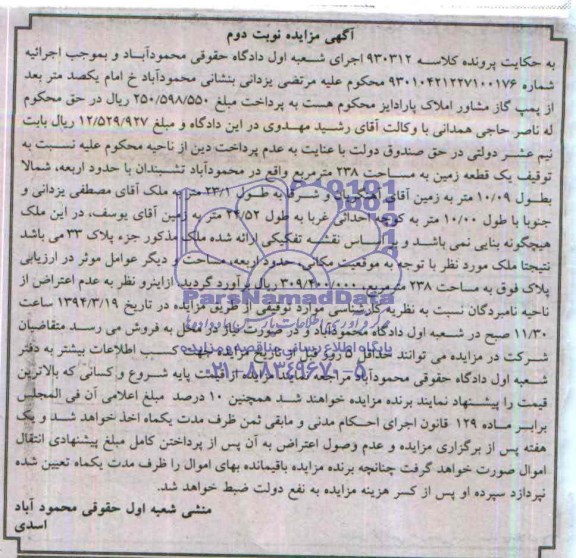 آگهی مزایده نوبت دوم
به حکایت پرونده کلاسه ۹۳۰۳۱۲ اجرای شعبه اول دادگاه حقوقی محمودآباد و بموجب اجرائیه
شماره ۹۳۰۱۰۴۲۱۲۲۷۱۰۰۱۷۶ محکوم علیه مرتضی یزدانی بنشانی محمودآباد خ امام یکصد متر بعد
از پمپ گاز مشاور املاک پارادایز محکوم هست به پرداخت مبلغ ۲۵۰/۵۹۸/۵۵۰ ریال در حق محکوم
له ناصر حاجی همدانی با وکالت آقای رشید مهدوی در این دادگاه و مبلغ ۱۲/۵۲۹/۹۲۷ ریال بابت
نیم عشر دولتی در حق صندوق دولت با عنایت به عدم پرداخت دین از ناحیه محکوم علیه نسبت به
توقیف یک قطعه زمین به مساحت ۲۳۸ مترمربع واقع در محمودآباد تشبندان با حدود اربعه، شمالا
بطول ۱۰/۰۹ متر به زمین آقای و شرقا به طول ۲۴/۱ متر به ملک آقای مصطفی یزدانی و
جنوبا با طول ۱۰/۰۰ متر به کوچه احداثی غربا به طول ۲۴/۵۲ متر به زمین آقای یوسف، در این ملک
هیچگونه بنایی نمی باشد و بر اساس نقشه تفکیکی ارائه شده ملک مذکور جزء پلاک ۳۳ می باشد
نتیجتا ملک مورد نظر با توجه به موقعیت مکانی، حدود اربعه، مساحت و دیگر عوامل موثر در ارزیابی
پلاک فوق به مساحت ۲۳۸ مترمربع، ۳۰۹/۴۰۰/۰۰۰ ریال برآورد گردید. ازاینرو نظر به عدم اعتراض از
ناحیه نامبردگان نسبت به نظریه کارشناسی موارد توقیفی از طریق مزایده در تاریخ ۱۳۹۴/۳/۱۹ ساعت
۱۱/۳۰ صبح در شعبه اول دادگاه محمودآباد و در صورت به فروش می رسد متقاضیان
شرکت در مزایده می توانند حداقل ۵ روز قبل از تاریخ مزایده جهت کسب اطلاعات بیشتر به دفتر
شعبه اول دادگاه حقوقی محمودآباد مراجعه نمایند مزایده از قیمت پایه شروع و کسانی که بالاترین
قیمت را پیشنهاد نمایند برنده مزایده خواهند شد همچنین ۱۰ درصد مبلغ اعلامی آن فی المجلس
برابر ماده ۱۲۹ قانون اجرای احکام مدنی و مابقی ثمن ظرف مدت یکماه اخذ خواهد شد و یک
هفته پس از برگزاری مزایده و عدم وصول اعتراض به آن پس از پرداختن کامل مبلغ پیشنهادی انتقال
اموال صورت خواهد گرفت چنانچه برنده مزایده باقیمانده بهای اموال را ظرف مدت یکماه تعیین شده
نپردازد سپرده او پس از کسر هزینه مزایده به نفع دولت ضبط خواهد شد.
منشی شعبه اول حقوقی محمود آباد
اسدی
ParsNamadData
پایگاه اطلاع رسانی مناقصه و مزایده
۰۲۱-۸۸۳۴۹۶۷۰-۵